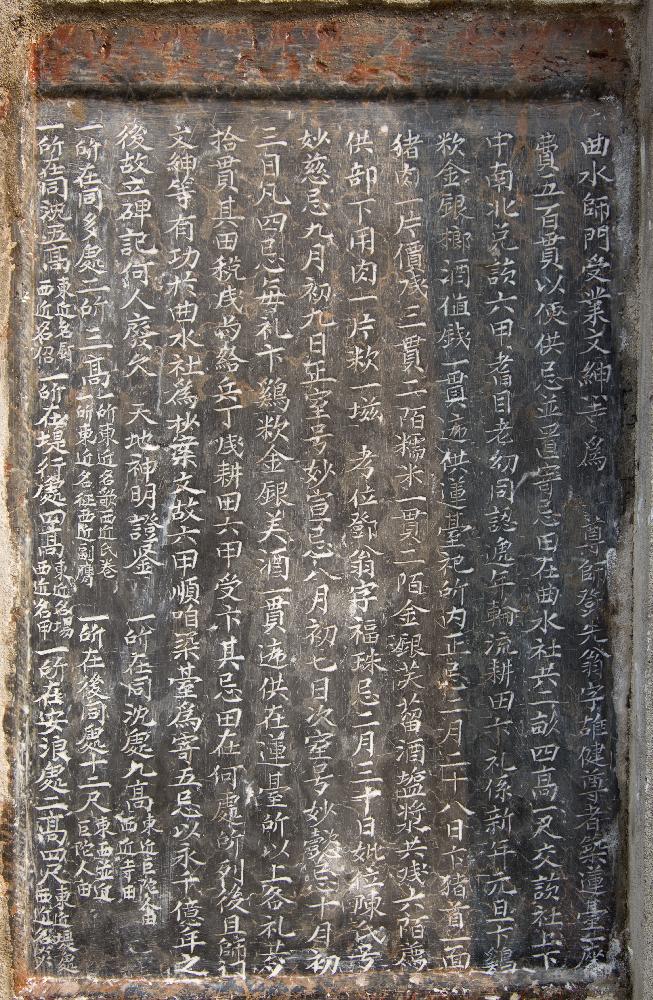 曲水師門受業文紳等爲 尊師鄧先翁字雄健尊者築蓮臺一座
費五百貫以便供忌並置寄忌田在曲水社共二畝四高一尺交該社上下
中南北兌該六甲耆目老幼同認逓年輪流耕田卞礼係新年元旦卞鷄
歀金銀榔酒值錢一貫逓供蓮臺祀所内正忌二月二十八日卞猪首一面
猪肉一片價戋三貫二陌糯米一貫二陌金銀芙蒥酒塩漿共戋六陌爲
供卸下用肉一片歀一 考位鄧翁字福珠忌二月三十日妣位陳氏号
妙慈忌九月初九日正室号妙宣忌八月初七日次室号妙懿忌十月初
三日凡四忌每礼卞鷄歀金銀芙酒一貫逓供在蓮臺所以上各礼
拾貫其田税戋爲給兵丁戋耕田六甲受卞其忌田在何處所列後且師門
文紳等有功於曲水社爲抄案文故六甲順咱柔臺爲寄五忌以永千億年之
後故立碑記何人廢欠 天地神明證鉴 一所在同沈處九高 東近巨陀人田 西近寺田
一所在同多處二所三高 一所東近名歌西近氏卷 一所東近名征西近副膺 一所在後同處十二尺 東西並近 巨陀人田
一所在同沈五高 東近名厨 西近名紹 一所在堤行處四高 東近名場 西近名甲 一所在安浪處二高四尺 東近壞處 西近名